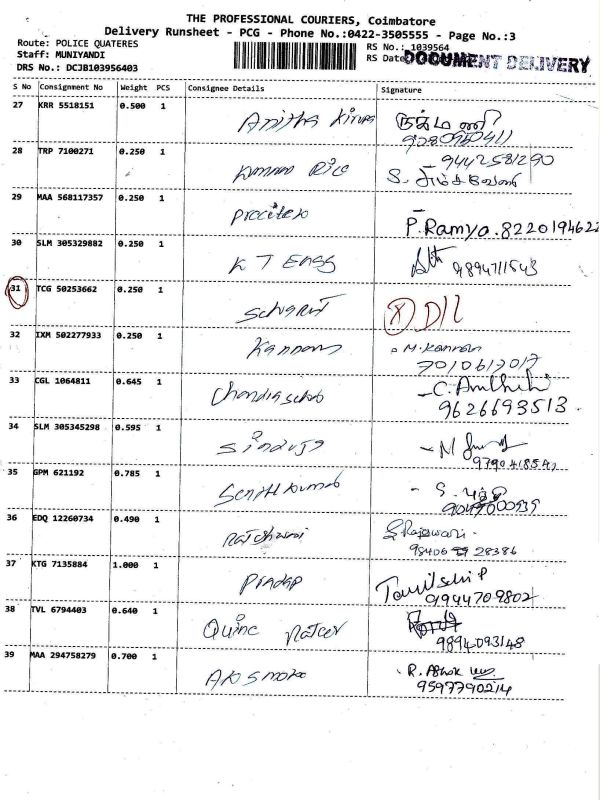 THE PROFESSIONAL COURIERS, Coimbatore
Delivery Runsheet - PCG - Phone No.:0422-3505555 - Page No.:3
Route: POLICE QUATERES
RS No.: 1039564
Staff: MUNIYANDI
RS Date
DOCUMENT DELIVERY
DRS No.: DCJB103956403
S No Consignment No Weight PCS Consignee Details Signature
27 KRR 5518151 0.500 1 Anitha
28 TRP 7100271 0.250 1 9442581290
29 MAA 568117357 0.250 1 P. Ramya. 822019462
30 SLM 305329882 0.250 1 K T Engg 9894711543
31 TCG 50253662 0.250 1
32 IXM 502277933 0.250 1 Kannan M. Kannan
7010617017
33 CGL 1064811 0.645 1 C.
9626693513.
34 SLM 305345298 0.595 1
35 GPM 621192 0.785 1 S.
36 EDQ 12260734 0.490 1 S Rajeswari
98406 28386
37 KTG 7135884 1.000 1 Pradap Tamilselvi P
9944709802
38 TVL 6794403 0.640 1
9894093148
39 MAA 294758279 0.700 1 R. Ashok
9597790214